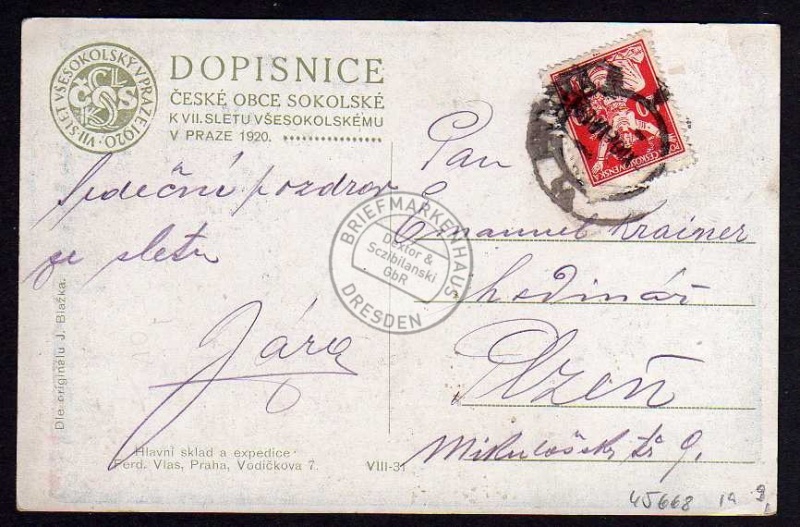 VII. SLET VŠESOKOLSKÝ V PRAZE 1920.
ČOS
DOPISNICE
ČESKÉ OBCE SOKOLSKÉ
K VII. SLETU VŠESOKOLSKÉMU
V PRAZE 1920.
Srdečné pozdrav
ze sletu
Jára
Dle originálu J. Blažka.
Hlavní sklad a expedice:
Ferd. Vlas, Praha, Vodičkova 7.
VIII-3
ČESKOSLOVENSKÁ
Pan
Emanuel Krainer
hodinář
Plzeň
Mikulášská tř 9.
BRIEFMARKENHAUS
Dextor &
Sczibilanski
GbR
DRESDEN
45668 19